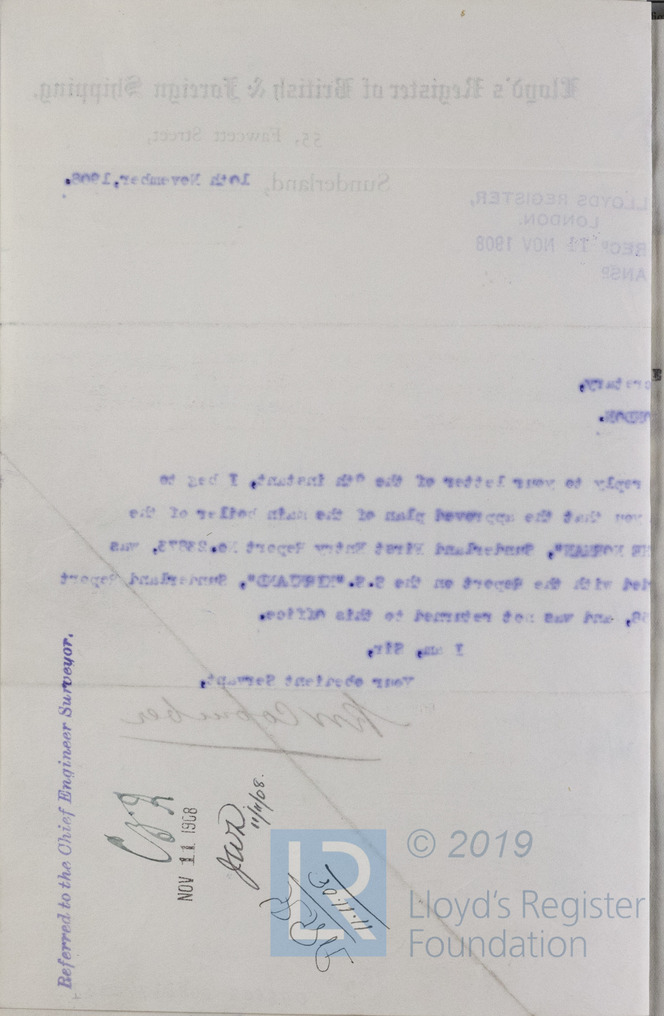 Lloyd's Register of British & Foreign Shipping.
55, Fawcett Street,
Sunderland, 10th November, 1908.
LLOYDS REGISTER,
LONDON.
RECD 11 NOV 1908
ANSD
retary,
NDON.
reply to your letter of the 9th instant, I beg to
you that the approved plan of the main boiler of the
NORMAN", Sunderland First Entry Report No. was
ded with the Report on the S.S. Sunderland Report
and was not returned to this office.
I am, Sir,
Your obedient Servant,
Referred to the Chief Engineer Surveyor.
NOV 11 1908
11/11/08.
LR
© 2019
Lloyd's Register
Foundation